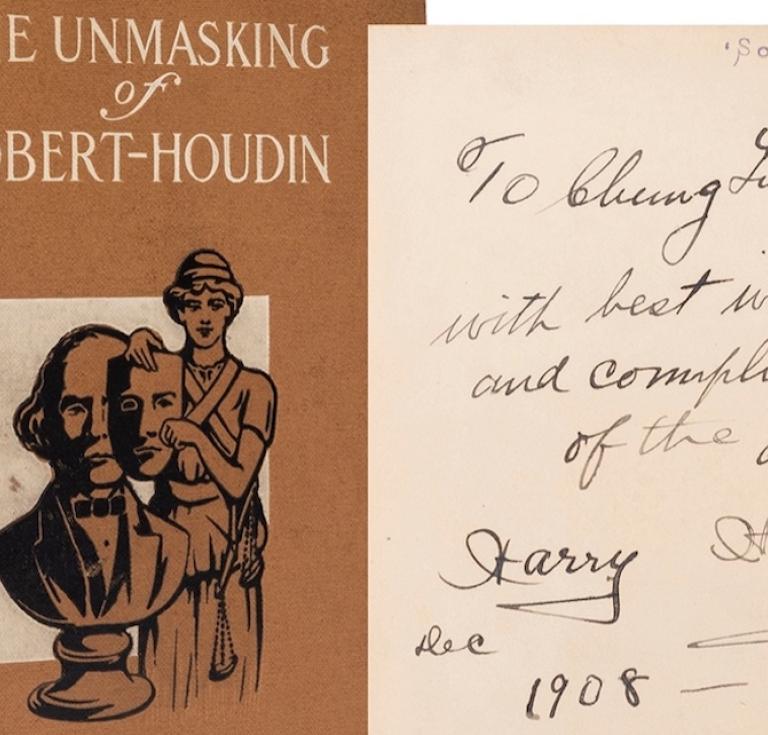 E UNMASKING
of
OBERT-HOUDIN
To Chung
with best
and compli
of the
Harry
Dec
1908 —